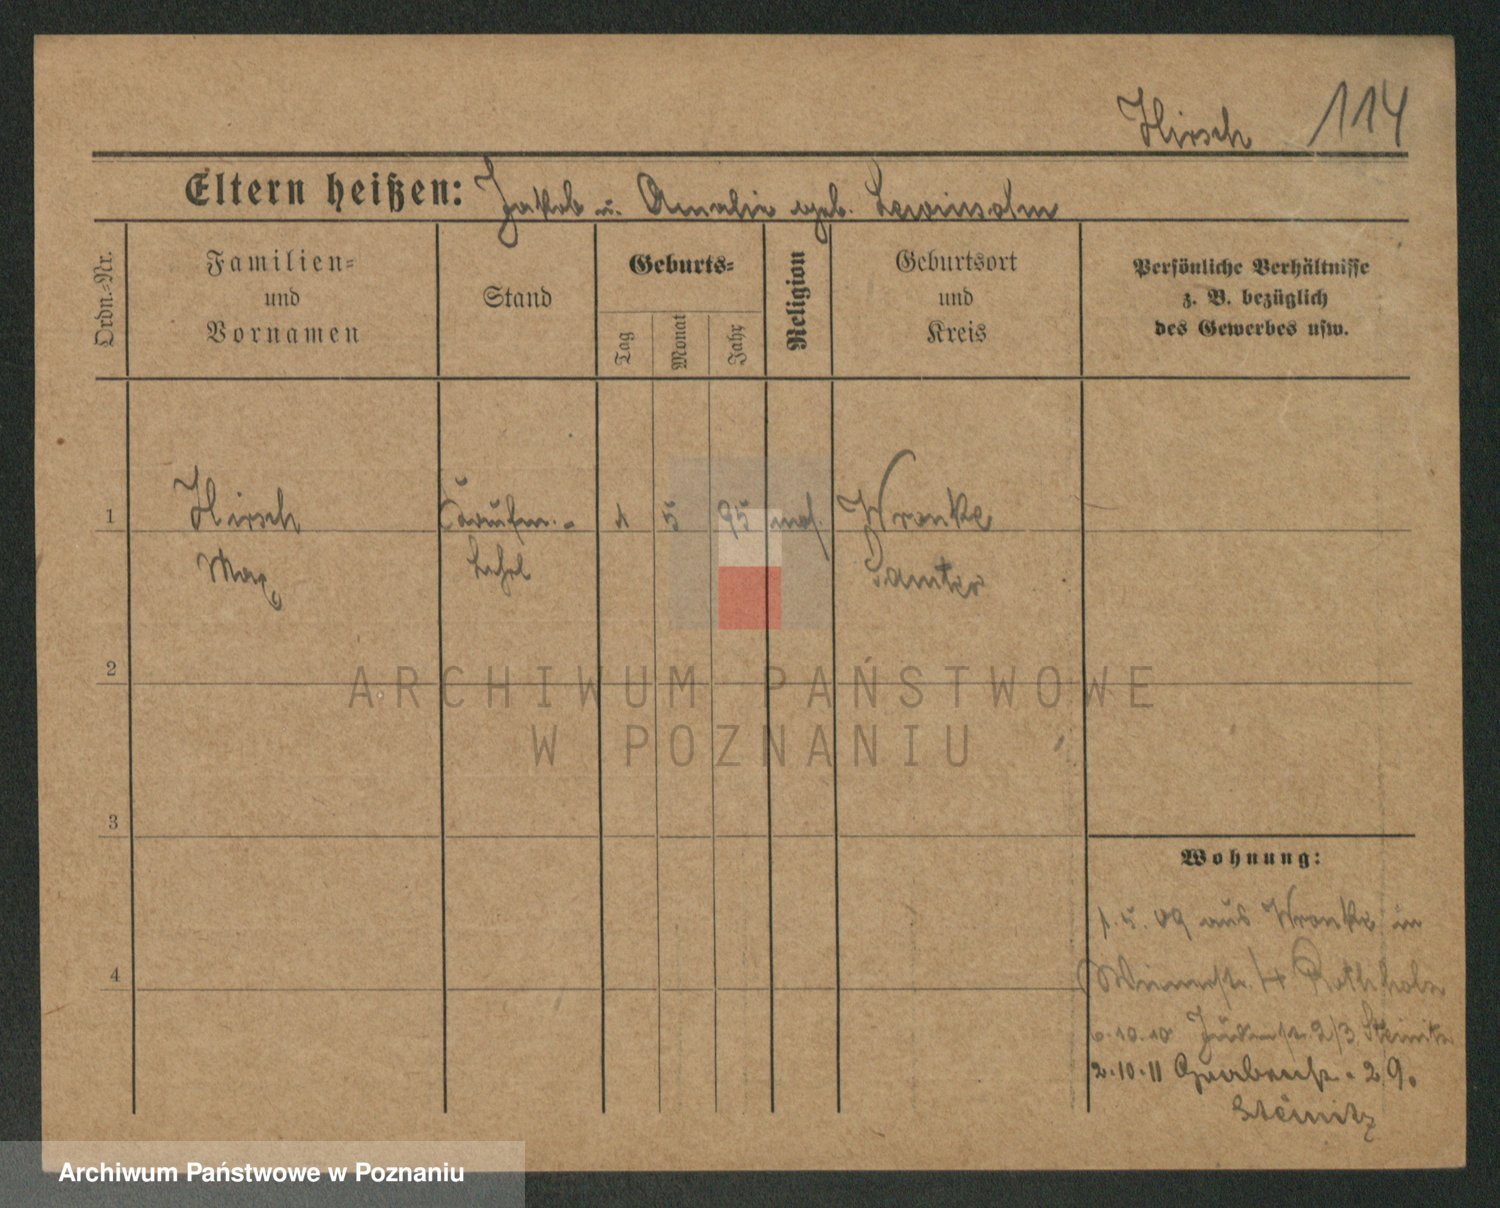 Hirsch 114
Eltern heißen: Jakob u. Amalie geb. Lewinsohn
Ordn.-Nr.
Familien-
und
Vornamen
Stand
Geburts-
Tag
Monat
Jahr
Religion
Geburtsort
und
Kreis
Persönliche Verhältnisse
z. B. bezüglich
des Gewerbes usw.
1 Hirsch Kaufm.- 1 5 95 mos. Wronke
Max Lehrl Samter
2
ARCHIWUM PAŃSTWOWE
W POZNANIU
3
Wohnung:
1. 5. 09 aus Wronke in
4 Wienerstr. Rothholz
6.10.10 Judenstr. 2/3 Steinitz
2.10.11 Grabenstr. 29.
Steinitz
Archiwum Państwowe w Poznaniu